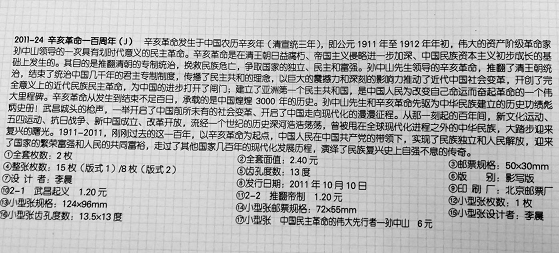 2011-24 辛亥革命一百周年（J） 辛亥革命发生于中国农历辛亥年（清宣统三年），即公元 1911 年至 1912 年年初，伟大的资产阶级革命家
孙中山领导的一次具有划时代意义的民主革命。辛亥革命是在清王朝日益腐朽、帝国主义侵略进一步加深、中国民族资本主义初步成长的基
础上发生的。其目的是推翻清朝的专制统治，挽救民族危亡，争取国家的独立、民主和富强。孙中山先生领导的辛亥革命，推翻了清王朝统
治，结束了统治中国几千年的君主专制制度，传播了民主共和的理念，以巨大的震撼力和深刻的影响力推动了近代中国社会变革，开创了完
全意义上的近代民族民主革命，为中国的进步打开了闸门；建立了亚洲第一个民主共和国，是中国人民为改变自己命运而奋起革命的一个伟
大里程碑。辛亥革命从发生到结束不足百日，承载的是中国煌煌 3000 年的历史。孙中山先生和辛亥革命先驱为中华民族建立的历史功绩彪
炳史册！武昌城头的枪声，一举开启了中国前所未有的社会变革、开启了中国走向现代化的漫漫征程。从那一刻起的百年间，新文化运动、
五四运动、抗日战争、新中国成立、改革开放，流经一个世纪的历史深河浩浩荡荡，曾被甩在全球现代化进程之外的中华民族，大踏步迎来
复兴的曙光。1911-2011，刚刚过去的这一百年，以辛亥革命为起点，中国人民在中国共产党的带领下，实现了民族独立和人民解放，迎来
了国家的繁荣富强和人民的共同富裕，走过了其他国家几百年的现代化发展历程，赓绎了民族复兴史上自强不息的传奇。
①全套枚数：2 枚 ②全套面值：2.40 元 ③邮票规格：50x30mm
④整张枚数：15 枚（版式 1）/8 枚（版式 2） ⑤齿孔度数：13 度 ⑥版 别：影写版
⑦设 计 者：李晨 ⑧发行日期：2011 年 10 月 10 日 ⑨印 刷 厂：北京邮票厂
⑩2-1 武昌起义 1.20 元 ⑪2-2 推翻帝制 1.20 元 ⑫小型张枚数：1 枚
⑬小型张规格：124x96mm ⑭小型张邮票规格：72x55mm ⑮小型张设计者：李晨
⑯小型张齿孔度数：13.5x13 度 ⑰小型张 中国民主革命的伟大先行者—孙中山 6 元